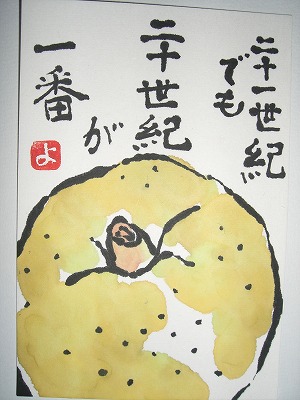 二十一世紀
でも
二十世紀
が
一番
よ